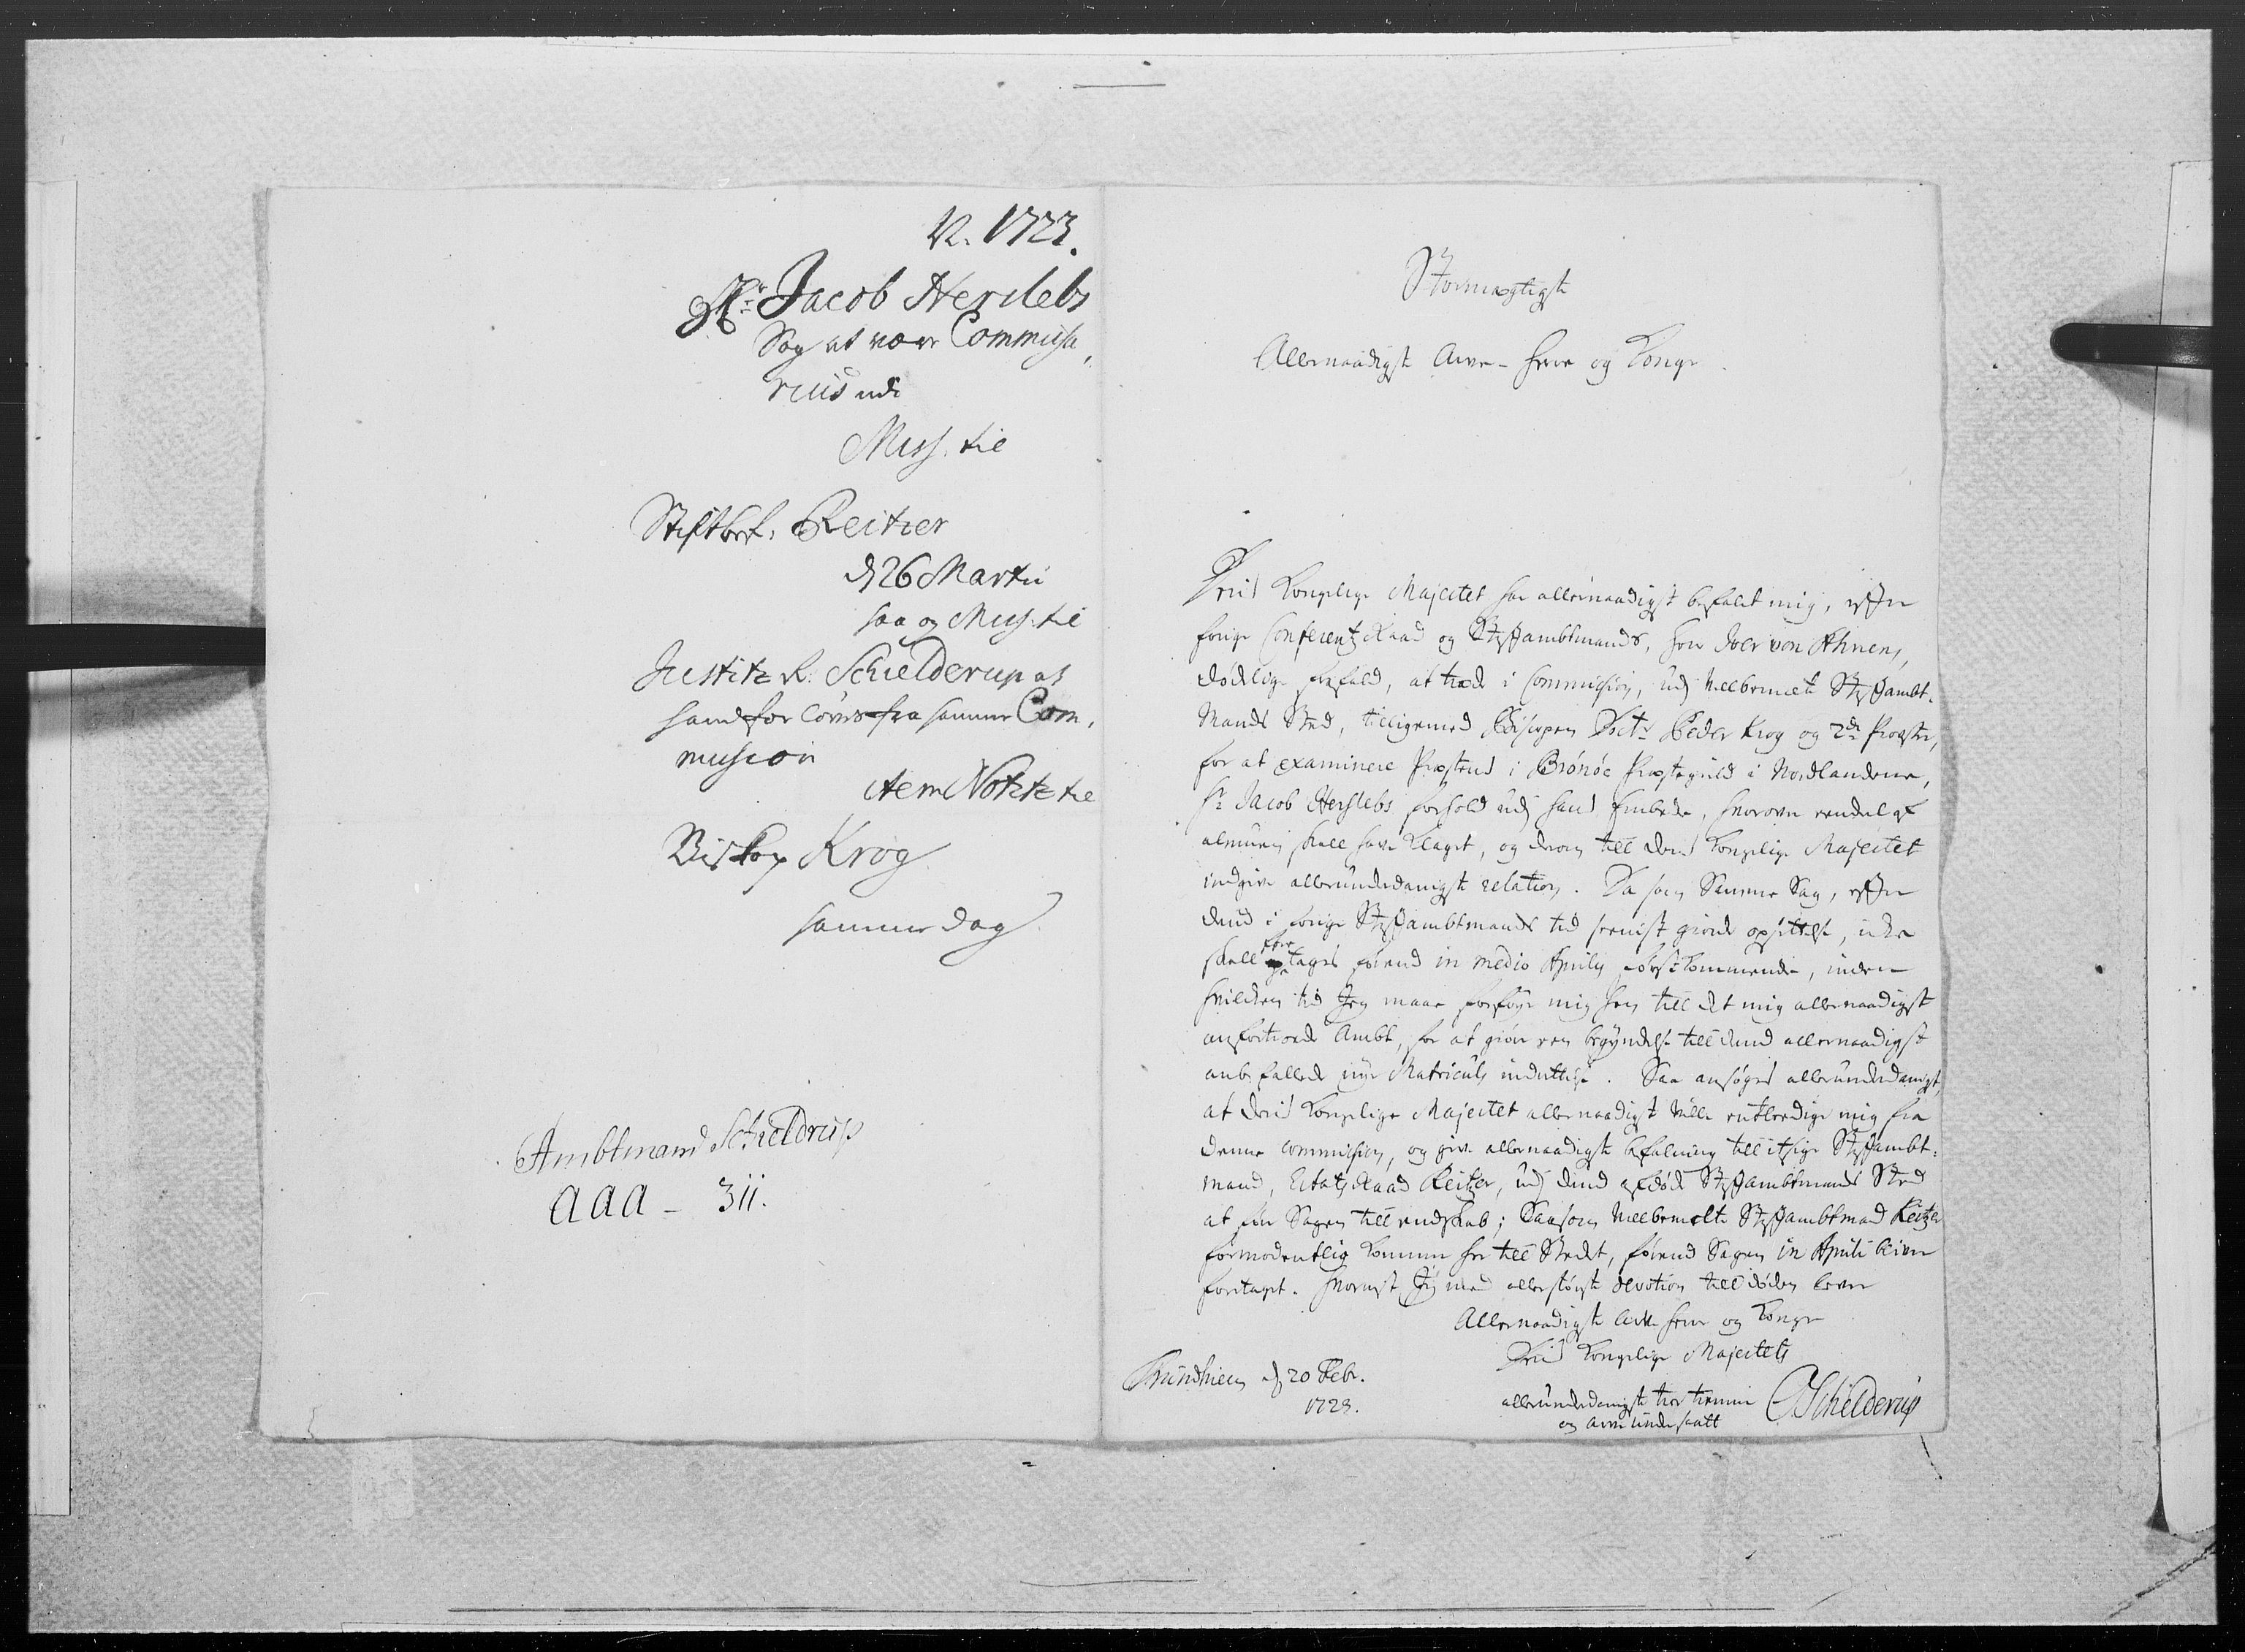 N. 1723.
Hr. Jacob Herslebs
Sag at være Commissa,
rius udi
Miss. til
Stiftbef: Reitzer
d 26 Martii
saa og Miss: til
Justitz R: Schielderup at
hand forløvis fra samme Com,
mission
item Notitz til
Biskop Krog
samme dag
Ambtmand Schieldrup
aaa - 311.
Stormægtigste
Allernaadigste Arve-Herre og Konge
Deris Kongelige Majestet har allernaadigst befalet mig, efter
forige Conferentz Raad og Stiftambtmands, Herr Iver von Ahnens,
dødelige frafald, at træde i Commission, udj velbemelte Stiftambt-
Mands Sted, tilligemed Biscopen Doctr Peder Krog og 2de Provster,
for at examinere Præstens i Brønøe Præstegield i Nordlandene,
Hr Jacob Herslebs forhold udj hans Embede, hvorover eendel af
almuen skall have klaget, og derom till Deris Kongelige Majestet
indgive allerunderdanigst relation. Da som Samme Sag, efter
dend i forige Stiftambtmands tid seenist giorde opsettelse, icke
skall foretages førend in medio Aprilis førstkommende, inden
hvilcken tid Jeg maae forføye mig hen till det mig allernaadigst
anfortroede Ambt, for at giøre een begyndelse till dend allernaadigst
anbefallede nye Matriculs indrettelse. Saa ansøges allerunderdanigst,
at Deris Kongelige Majestet allernaadigst ville entledige mig fra
denne commission, og give allernaadigst befalning till itzige Stiftambt-
mand, Etatz Raad Reitzer, udj dend afdøde Stiftambtmands Sted
at føre Sagen till endskab; Saasom velbemelte Stiftambtmand Reitzer
formodentlig kommer her till Stedet, førend Sagen in Aprili bliver
foretaget. Hvornest Jeg med allerstørste devotion till døden lever
Allernaadigste Arve Herre og Konge
Deris Kongelige Majestets
Trundhiem d 20 Febr.
1723.
allerunderdanigste troe tienner
og arve undersaatt
Schielderup